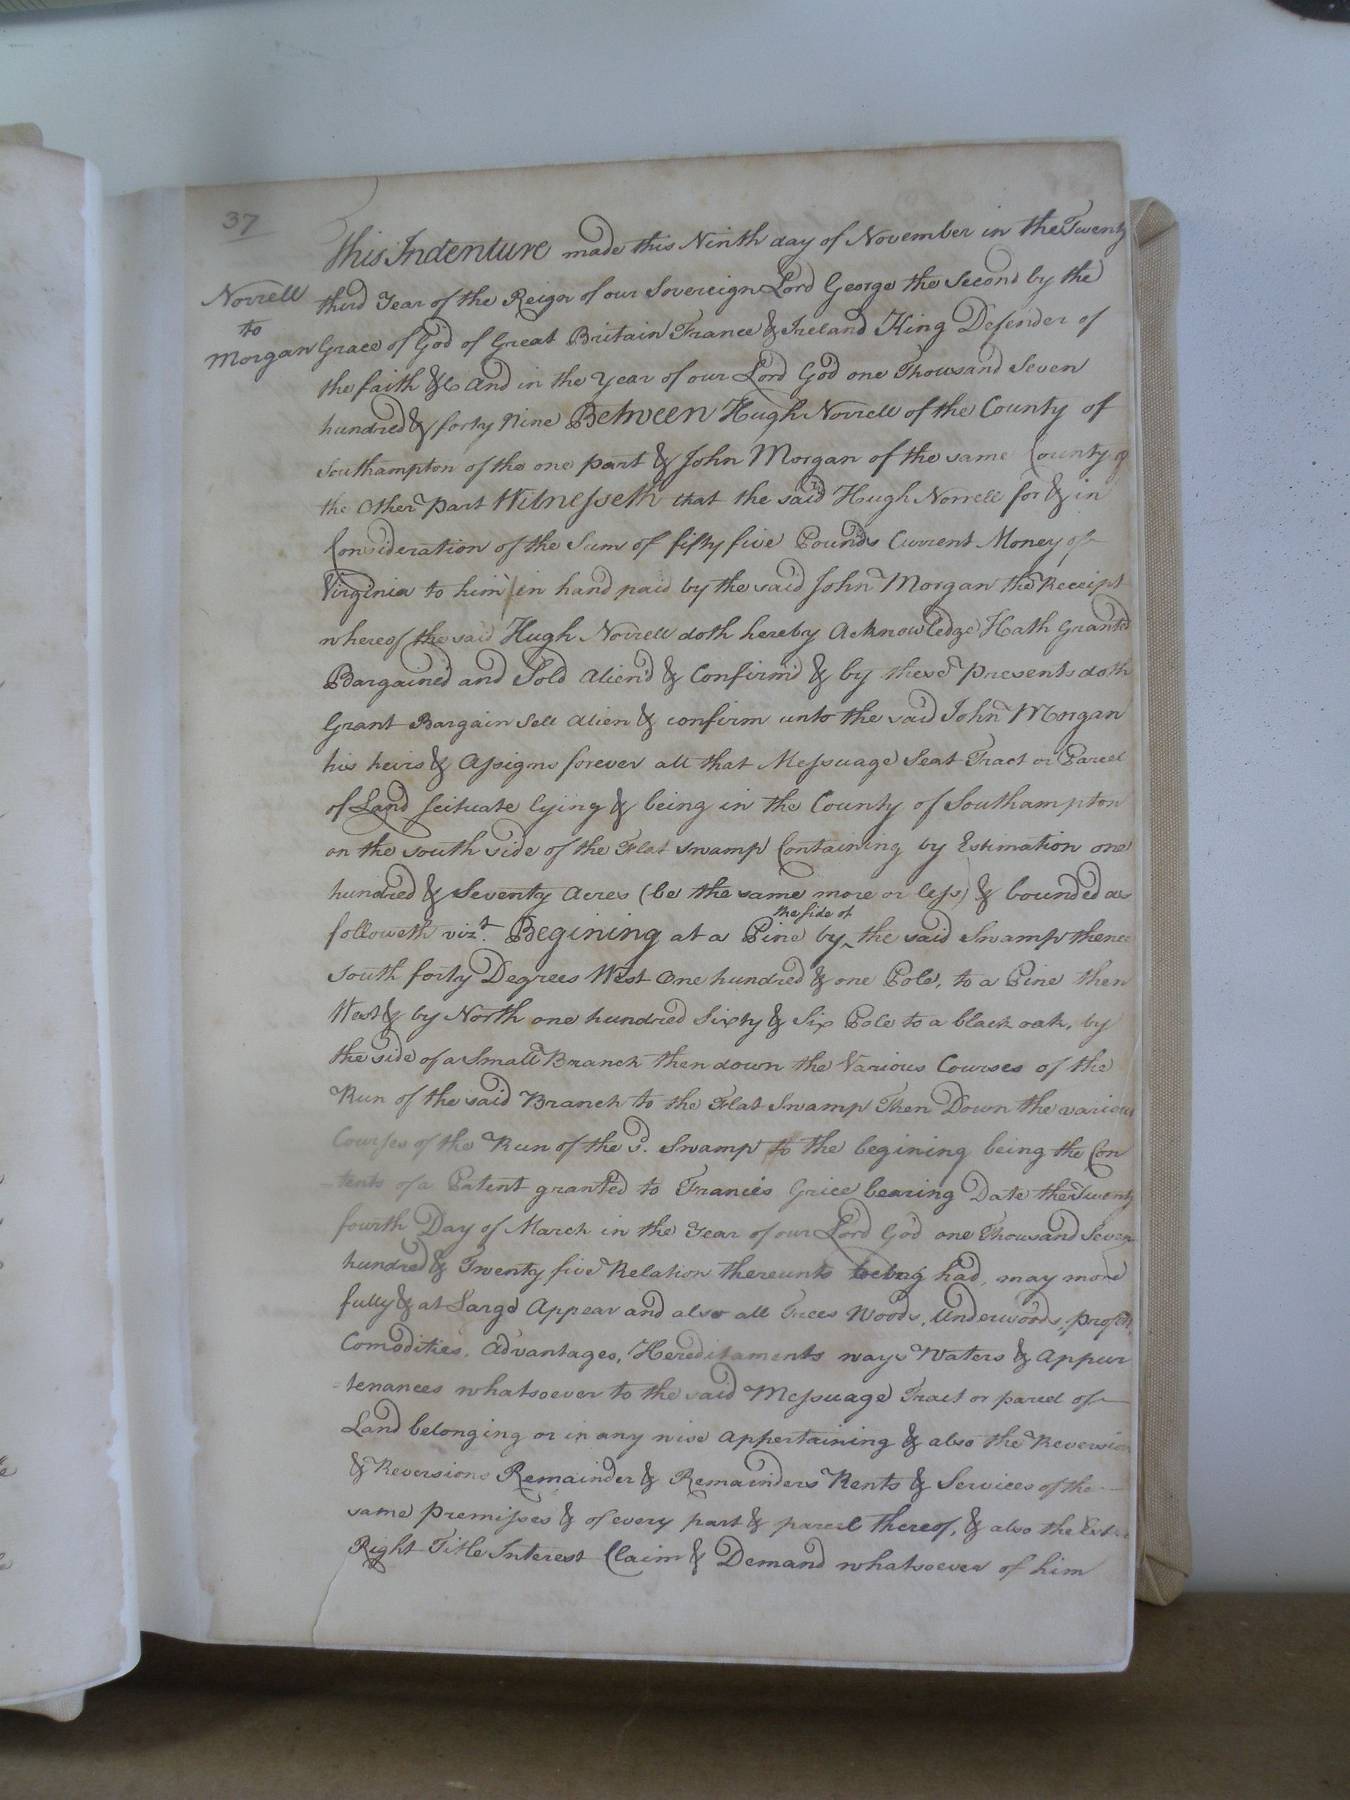 37
Norrell
to
Morgan
This Indenture made this Ninth day of November in the Twenty
third Year of the Reign of our Sovereign Lord George the Second by the
Grace of God of Great Britain France & Ireland King Defender of
the faith &c And in the Year of our Lord God one Thousand Seven
hundred & forty Nine Between Hugh Norrell of the County of
Southampton of the one part & John Morgan of the same County of
the Other part Witnesseth that the said Hugh Norrell for & in
Consideration of the Sum of fifty five Pounds Current Money of
Virginia to him in hand paid by the said John Morgan the Receipt
whereof the said Hugh Norrell doth hereby Acknowledge Hath Granted
Bargained and Sold Alien'd & Confirm'd & by these presents doth
Grant Bargain Sell Alien & confirm unto the said John Morgan
his heirs & Assigns forever all that Messuage Seat Tract or Parcel
of Land scituate lying & being in the County of Southampton
on the south side of the Flat swamp Containing by Estimation one
hundred & Seventy Acres (be the same more or less) & bounded as
followeth vizt. Begining at a Pine by the side of the said Swamp thence
South forty Degrees West One hundred & one Pole, to a Pine then
West & by North one hundred Sixty & Six Pole to a black oak, by
the side of a Small Branch then down the Various Courses of the
Run of the said Branch to the Flat Swamp Then Down the various
Courses of the Run of the sd. Swamp to the begining being the Con
-tents of a Patent granted to Francis Grice bearing Date the Twenty
fourth Day of March in the Year of our Lord God one Thousand Seven
hundred & Twenty five Relation thereunto being had, may more
fully & at Large Appear and also all Trees Woods, Underwoods, profits,
Comodities, Advantages, Hereditaments ways Waters & Appur
=tenances whatsoever to the said Messuage Tract or parcel of
Land belonging or in any wise Appertaining & also the Reversion
& Reversions Remainder & Remainders Rents & Services of the
same premisses & of every part & parcel thereof, & also the
Right Title Interest Claim & Demand whatsoever of him